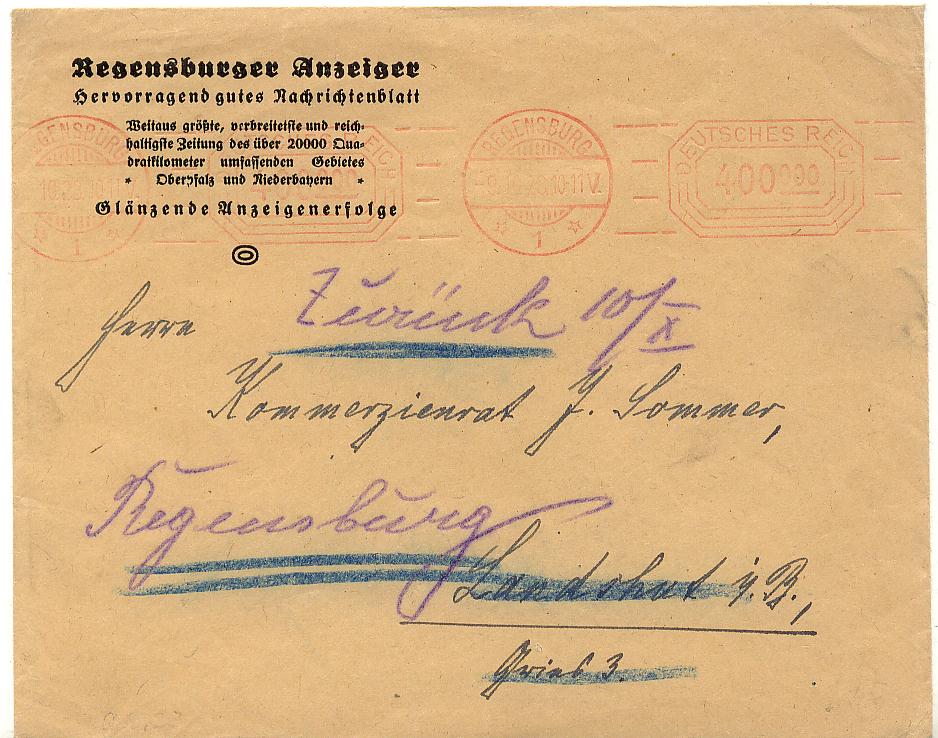 Regensburger Anzeiger
Hervorragend gutes Nachrichtenblatt
Weitaus größte, verbreitetste und reich-
haltigste Zeitung des über 20000 Qua-
dratkilometer umfassenden Gebietes
* Oberpfalz und Niederbayern *
Glänzende Anzeigenerfolge
REGENSBURG
10-11 V.
1
DEUTSCHES REICH
400000
REGENSBURG
1
REICH
Zurück 10/X
Herrn
Kommerzienrat J. Sommer,
Regensburg
Landshut i. B.,
Gries 3.